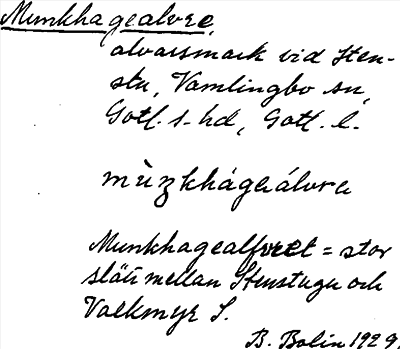 Munkhagealvre,
alvarsmark vid Sten-
stu, Vamlingbo sn,
Gotl. s. hd, Gotl. l.
mùŋkhágaálvra
Munkhagealfvret = stor
slätt mellan Stenstugu och
Valkmyr S.
B. Bolin 1929.